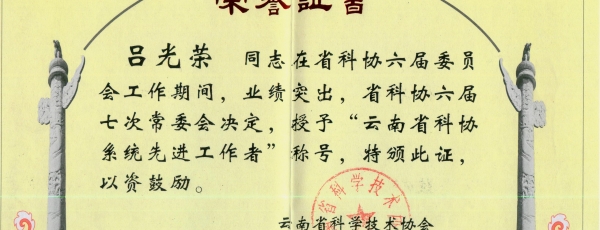 荣誉证书
吕光荣 同志在省科协六届委员
会工作期间，业绩突出，省科协六届
七次常委会决定，授予“云南省科协
系统先进工作者”称号，特颁此证，
以资鼓励。
省科学技术
云南省科学技术协会